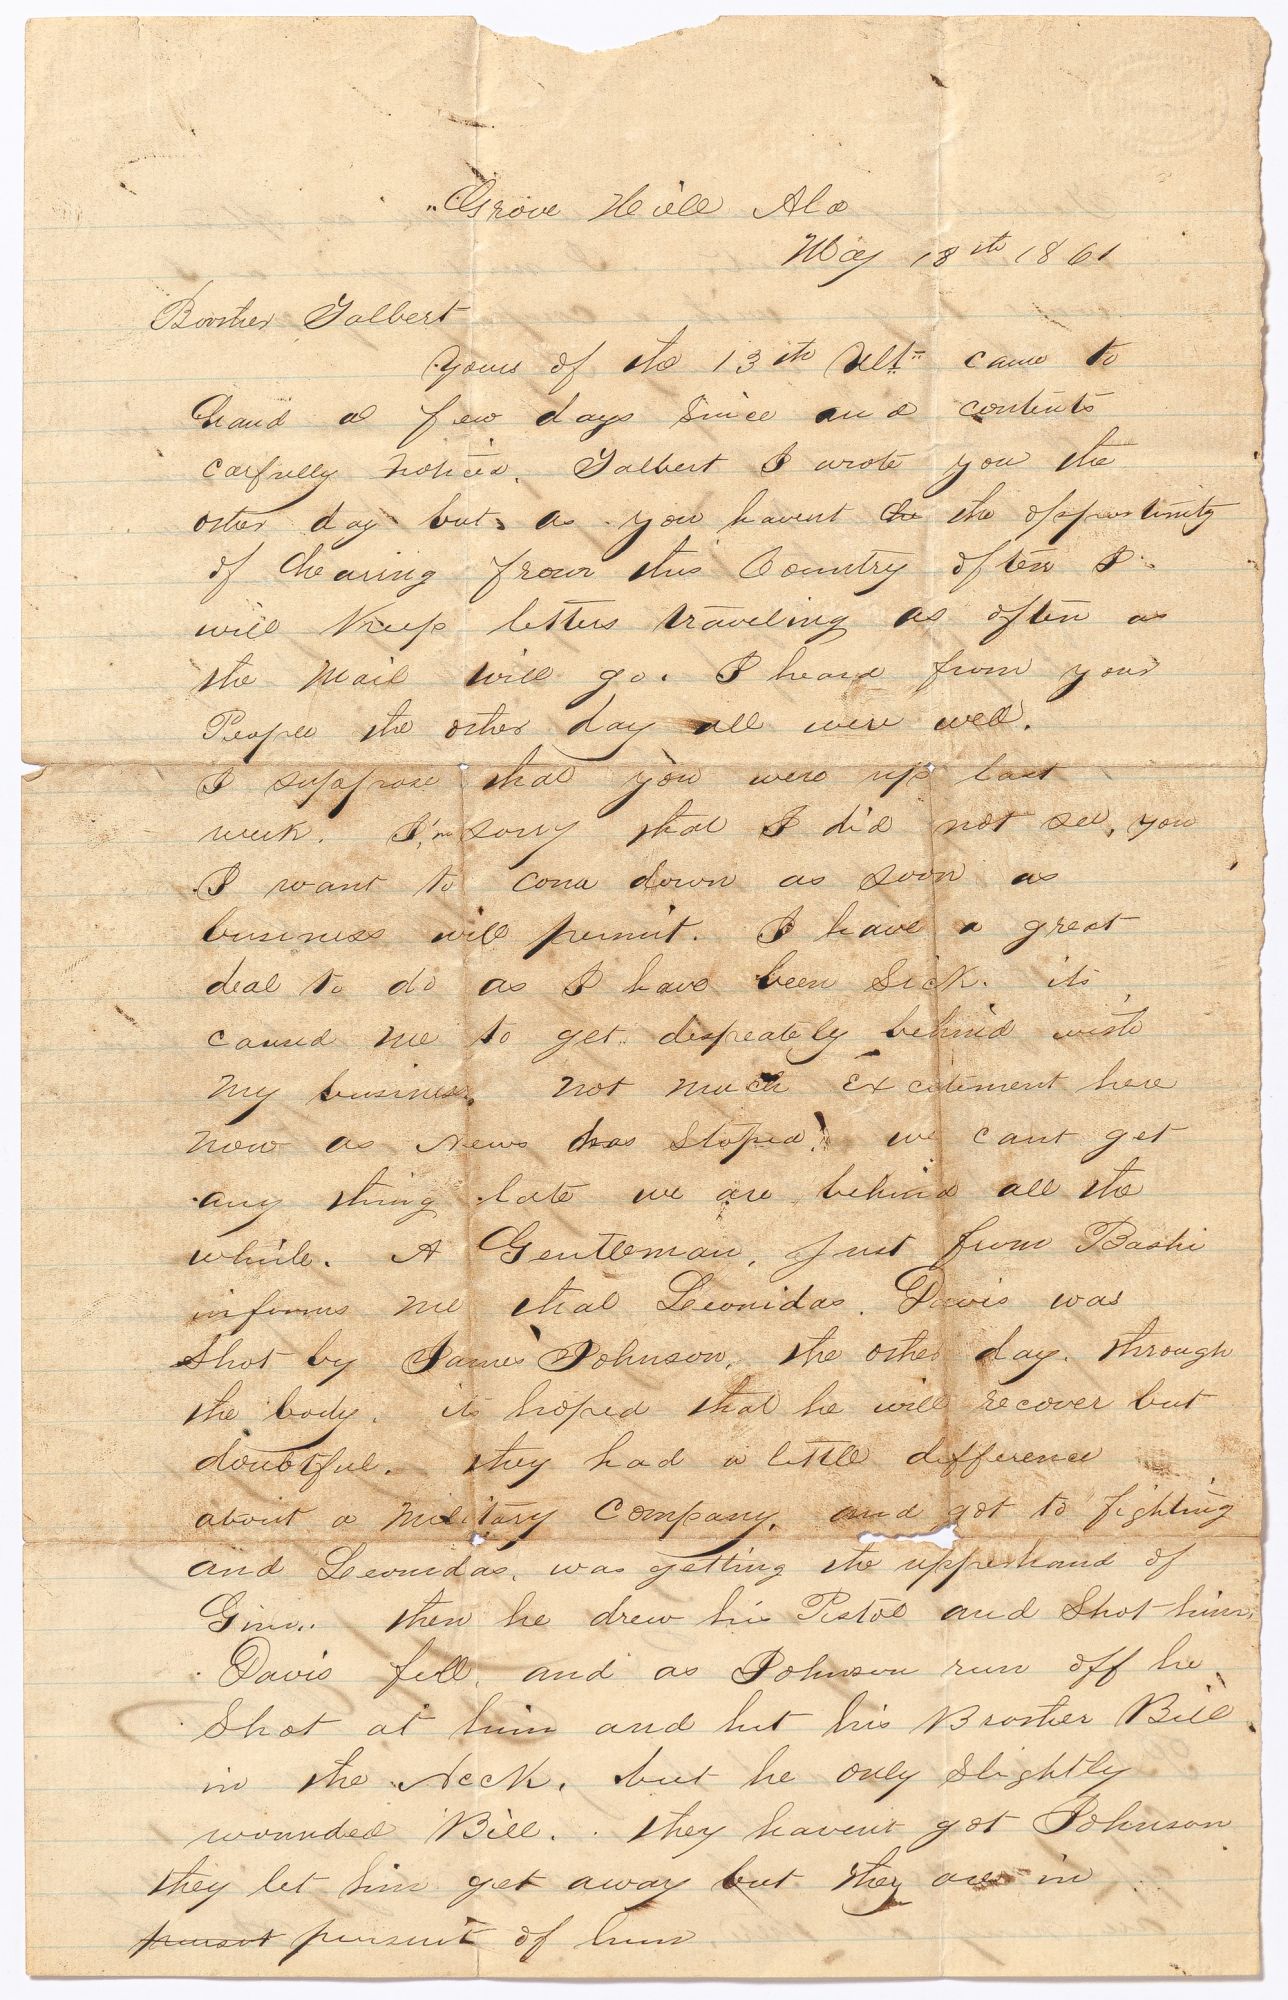 Grove Hill Ala
May 18th 1861
Brother Talbert
Yours of the 13th Ult= came to
hand a few days since and contents
carfully noticed. Talbert I wrote you the
other day but, as you havent the the opportunity
of hearing from this Country often I
will Keep letters traveling as often as
the Mail will go. I heard from your
People the other day all were well.
I suppose that you were up last
week. I'm sorry that I did not see, you
I want to come down as soon as
business will permit. I have a great
deal to do as I have been Sick. its
caused me to get despeately behind with
My business. Not much Excitement here
now as News has Stoped. we cant get
any thing late we are behind all the
while. A Gentleman, Just from Bashi
informs me that Leonidas. Davis was
Shot by James Johnson, the other day. through
the body. its hoped that he will recover but
doubtful. they had a little difference
about a Military Company. and got to fighting
and Leonidas, was getting the upperhand of
Gim.. then he drew his Pistol and Shot him,
Davis fell, and as Johnson run off he
Shot at him and hit his Brother Bill
in the Neck, but he only Slightly
wounded Bill.. they havent got Johnson
they let him get away but they are in
pursot pursuit of him